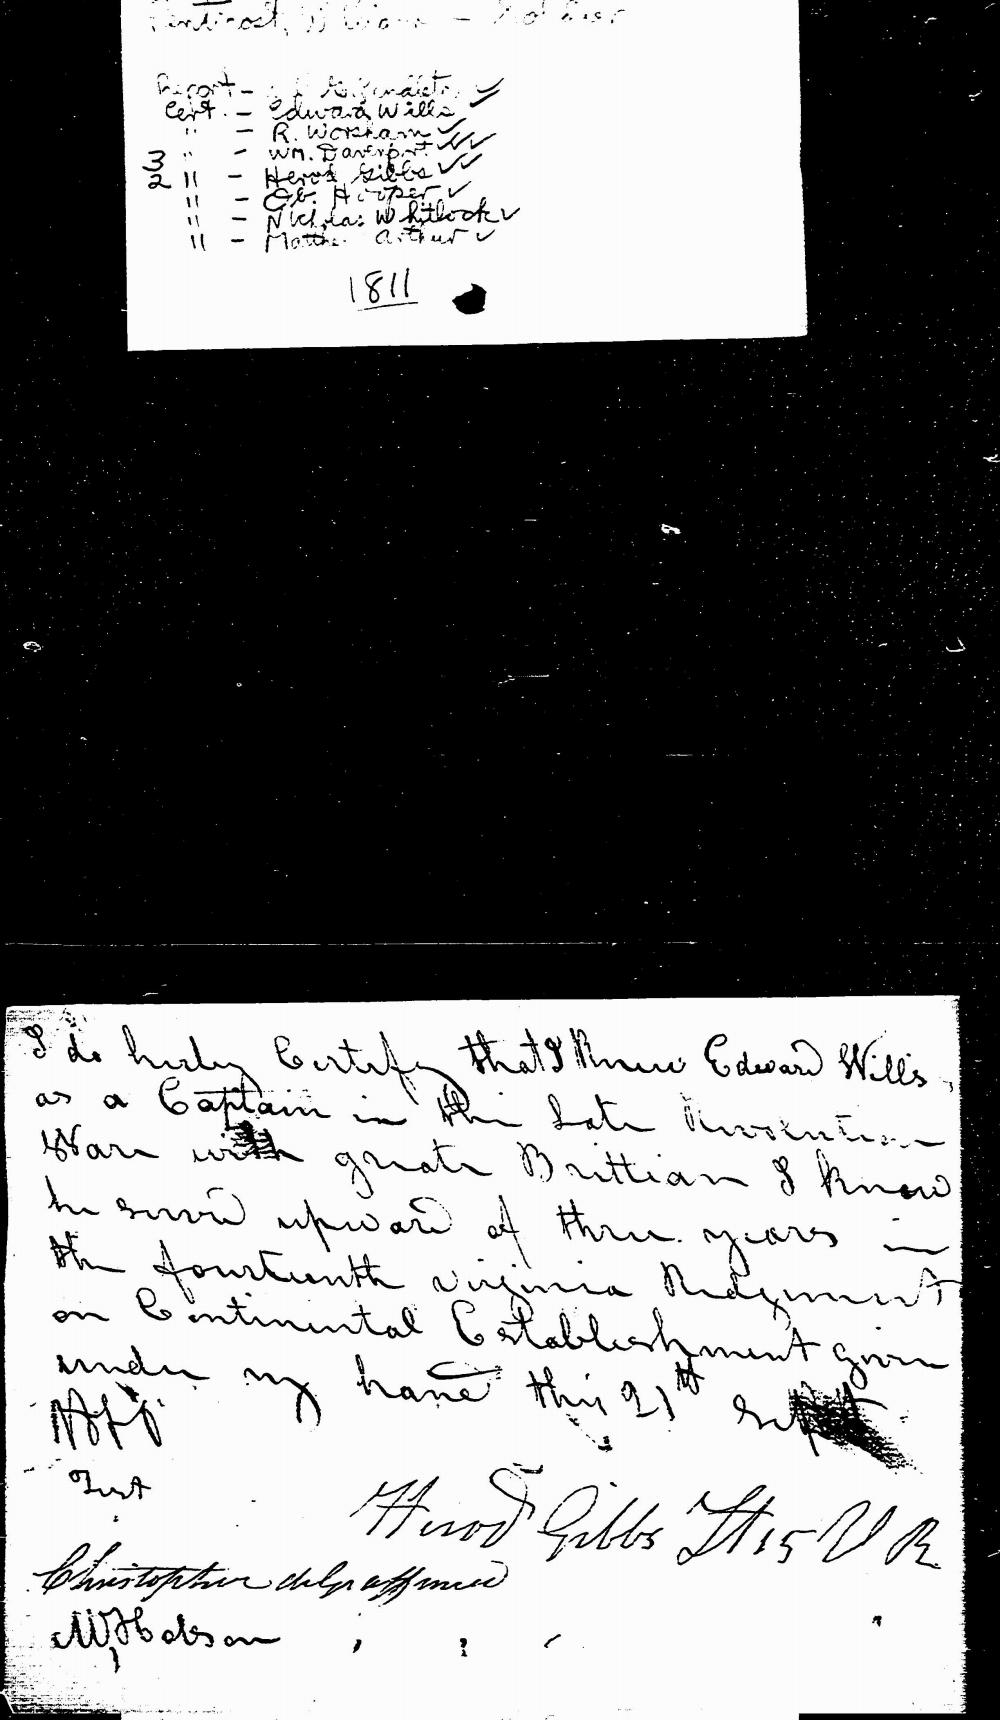 Pentecost, William - Soldier
Report -
Cert. - Edward Wills ✓
" - R. Worsham ✓
3 " - Wm. Davenport ✓✓✓
2 " - Herod Gibbs ✓✓
" - Ob. Hooper ✓
" - Nicholas Whitlock ✓
" - Matthew Arthur ✓
1811
I do herby Certify that I Knew Edward Wills
as a Captain in the Late Revolution
Ware with greate Brittian I know
he served upward of three years in
the fourteenth virginia Ridgement
on Continental Establishment given
under my hand this 21th Sept
Test
Herod Gibbs Lt 15 V R
Christopher deGraffenried
M Hobson